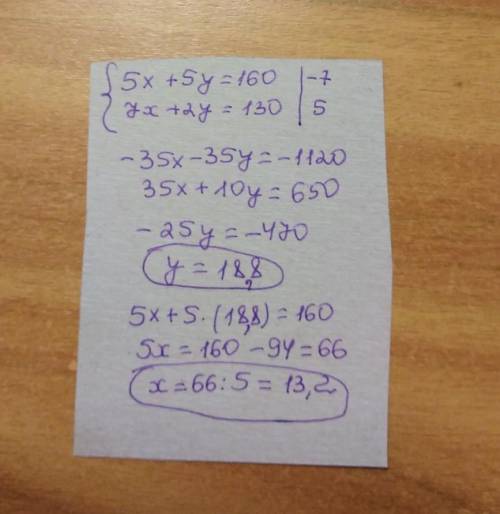 { 5x + 5y = 160 | -7
7x + 2y = 130 | 5
-35x - 35y = -1120
35x + 10y = 650
- 25y = -470
y = 18,8
5x + 5 · (18,8) = 160
5x = 160 - 94 = 66
x = 66 : 5 = 13,2